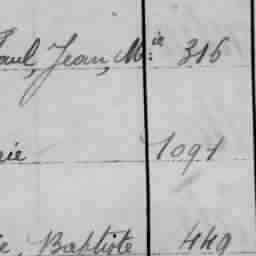 Paul, Jean, M.ie 316
rie 1091
ie, Baptiste 449